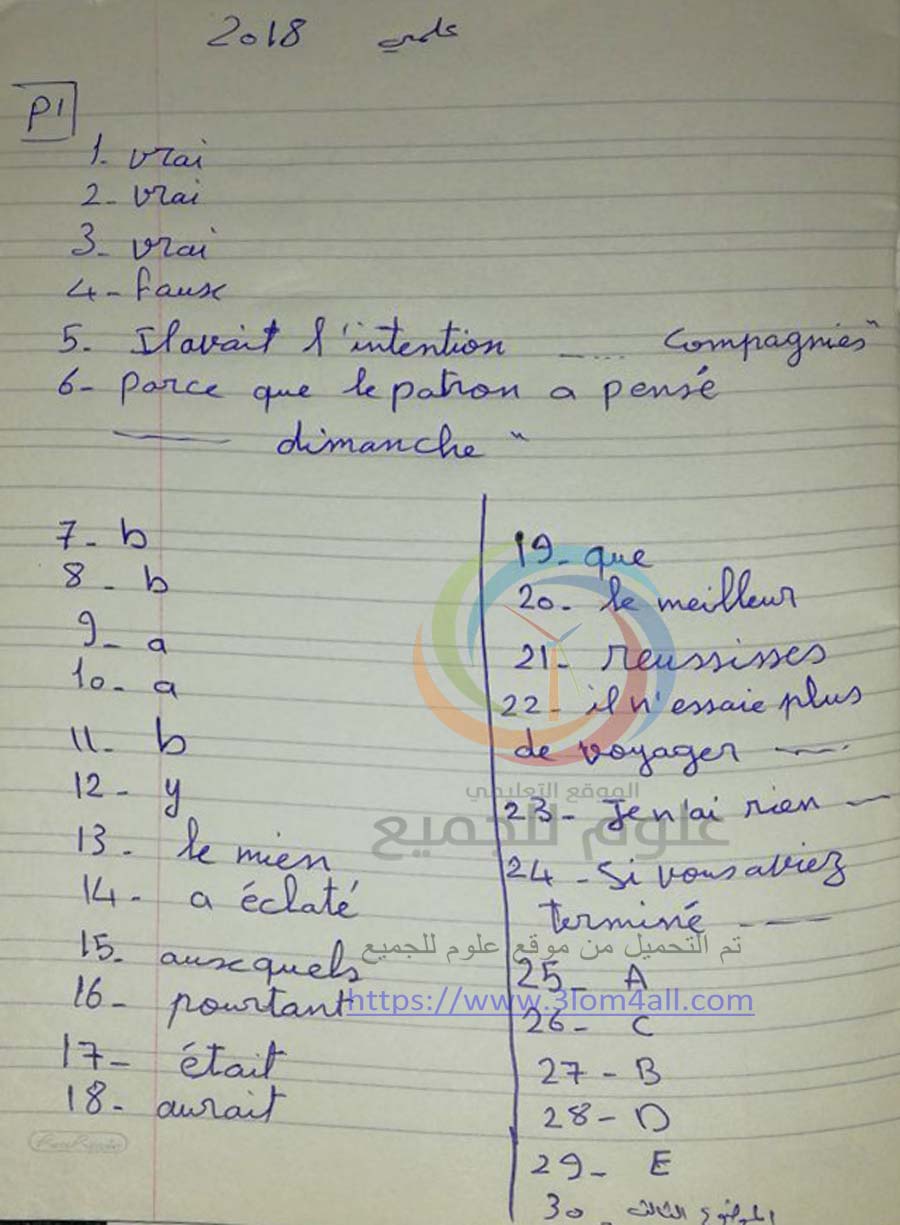 2018 علمي
P1
1. vrai
2_ vrai
3_ vrai
4_ faux
5. Il avait l'intention _.... Compagnies"
6_ parce que le patron a pensé
—— dimanche "
7_ b
8_ b
9_ a
10_ a
11_ b
12_ y
13_ le mien
14_ a éclaté
15_ auxquels
16_ pourtant
17_ était
18_ aurait
19_ que
20_ le meilleur
21_ reussisses
22_ il n'essaie plus
de voyager ——.
23_ Je n'ai rien —
24_ Si vous aviez
terminé ——
25_ A
26_ C
27_ B
28_ D
29_ E
30_ الموضوع الثالث
الموقع التعليمي
علوم للجميع
تم التحميل من موقع علوم للجميع
https://www.3lom4all.com